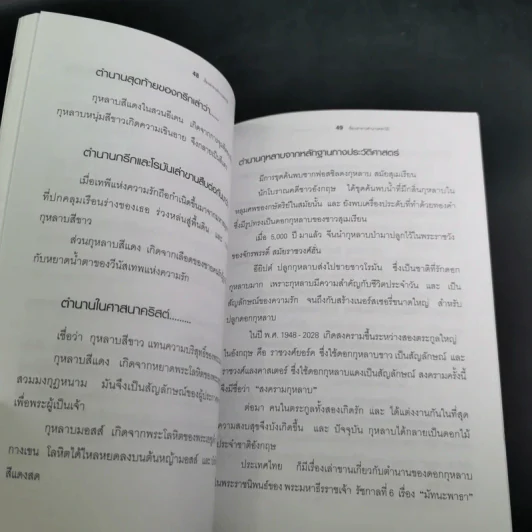 48
ตำนานสุดท้ายของกรีกเล่าว่า.....
กุหลาบสีแดงในสวนอีเดน เกิดจากการ
กุหลาบหนุ่มสีขาวเกิดความเขินอาย จึงกลายเป็น
ตำนานกรีกและโรมันเล่าขานสืบต่อกันมา
เมื่อเทพีแห่งความรักถือกำเนิดขึ้นมาจาก
ที่ปกคลุมเรือนร่างของเธอ ร่วงหล่นสู่พื้นดิน และ
กุหลาบสีขาว
ส่วนกุหลาบสีแดง เกิดจากเลือดของ
กับหยาดน้ำตาของวีนัสเทพแห่งความรัก
ตำนานในศาสนาคริสต์.........
เชื่อว่า กุหลาบสีขาว แทนความบริสุทธิ์ของ
กุหลาบสีแดง เกิดจากหยาดพระโลหิตของพระ
สวมมงกุฎหนาม มันจึงเป็นสัญลักษณ์ของผู้
เพื่อพระผู้เป็นเจ้า
กุหลาบมอสส์ เกิดจากพระโลหิตของพระเยซู
กางเขน โลหิตได้ไหลหยดลงบนต้นหญ้ามอสส์ และ
สีแดงสด
49
ตำนานกุหลาบจากหลักฐานทางประวัติศาสตร์
มีการขุดค้นพบซากฟอสซิลดงกุหลาบ สมัยสุเมเรียน
นักโบราณคดีชาวอังกฤษ ได้ขุดค้นพบน้ำที่มีกลิ่นกุหลาบใน
หลุมศพของกษัตริย์ในสมัยนั้น และ ยังพบเครื่องประดับที่ทำด้วยทองคำ
ซึ่งมีรูปทรงเป็นดอกกุหลาบของชาวสุเมเรียน
เมื่อ 5,000 ปี มาแล้ว จีนนำกุหลาบป่ามาปลูกไว้ในพระราชวัง
ของจักรพรรดิ์ สมัยราชวงศ์ฮั่น
อียิปต์ ปลูกกุหลาบส่งไปขายชาวโรมัน ซึ่งเป็นชาติที่รักดอก
กุหลาบมาก เพราะกุหลาบมีความสำคัญกับชีวิตประจำวัน และ เป็น
สัญลักษณ์ของความรัก จนถึงกับสร้างเนอร์สเซอรี่ขนาดใหญ่ สำหรับ
ปลูกดอกกุหลาบ
ในปี พ.ศ. 1948 - 2028 เกิดสงครามขึ้นระหว่างสองตระกูลใหญ่
ในอังกฤษ คือ ราชวงศ์ยอร์ค ซึ่งใช้ดอกกุหลาบขาว เป็นสัญลักษณ์ และ
ราชวงศ์แลงคาสเตอร์ ซึ่งใช้ดอกกุหลาบแดงเป็นสัญลักษณ์ สงครามครั้งนี้
จึงมีชื่อว่า "สงครามกุหลาบ"
ต่อมา คนในตระกูลทั้งสองเกิดรัก และ ได้แต่งงานกันในที่สุด
ความสงบสุขจึงบังเกิดขึ้น และ ปัจจุบัน กุหลาบได้กลายเป็นดอกไม้
ประจำชาติอังกฤษ
ประเทศไทย ก็มีเรื่องเล่าขานเกี่ยวกับตำนานของดอกกุหลาบ
ในพระราชนิพนธ์ของ พระมหาธีรราชเจ้า รัชกาลที่ 6 เรื่อง "มัทนะพาธา"